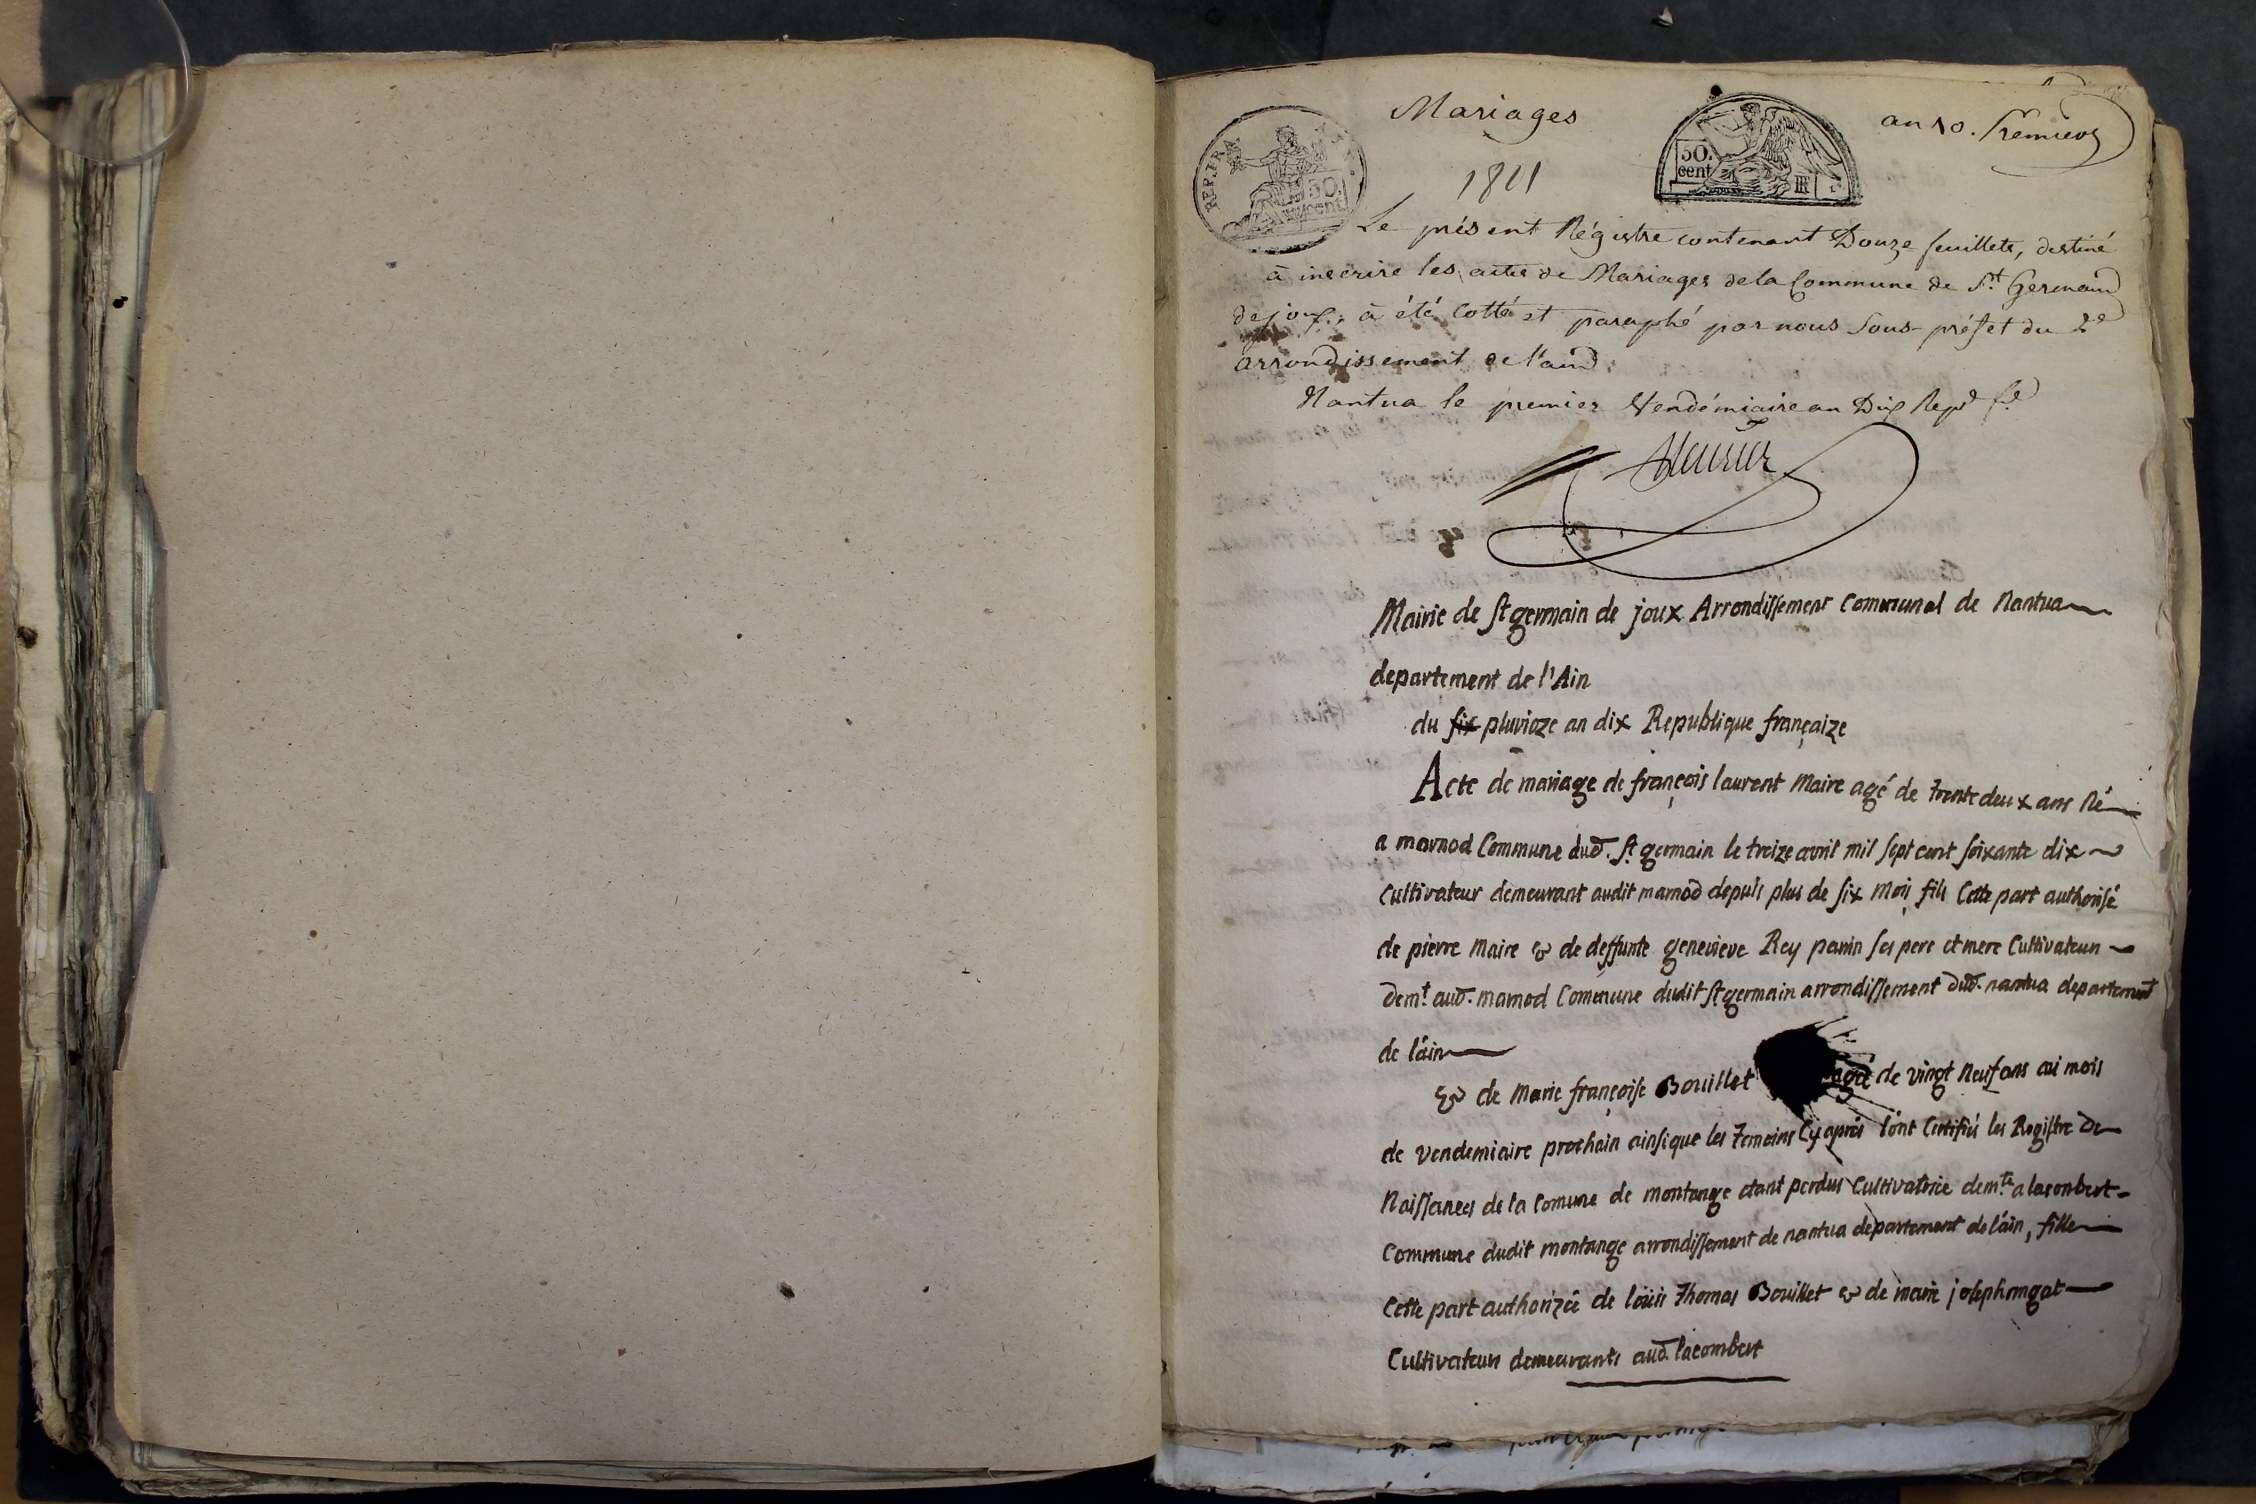 Mariages
an 10. Premier
REP. FRA.
50. cent
50. cent
1811
Le présent Régistre contenant Douze feuillets, destiné
à inscrire les actes de Mariages de la Commune de St. Germain
dejoux, à été Cotté et paraphé par nous Sous-préfet du 2e
arrondissement de l'ain
Nantua le premier Vendémiaire an Dix Repe fse
Mairie de St germain de joux Arrondissement Communal de Nantua
departement de l'Ain
du six pluvioze an dix Republique françaize
Acte de mariage de françois laurent Maire agé de trente deux ans Né
a marnod Commune dud. St. germain le treize avril mil sept cent soixante dix
Cultivateur demeurant audit marnod depuis plus de six mois fils Cette part authorisé
de pierre Maire & de deffunte genevieve Rey panin ses pere et mere Cultivateurs
demt. aud. marnod Commune dudit St germain arrondissement dud. nantua departement
de l'ain
& de Marie françoise Bouillet agée de vingt Neuf ans au mois
de vendemiaire prochain ainsique les Temoins Cy après l'ont Certifiés les Registre de
Naissances de la Comune de montange etant perdus Cultivatrice demte. a lacombert
Commune dudit montange arrondissement de nantua departement de l'ain, fille
Cette part authorizée de loüis Thomas Bouillet & de marie
Cultivateurs demeurants aud. lacombert